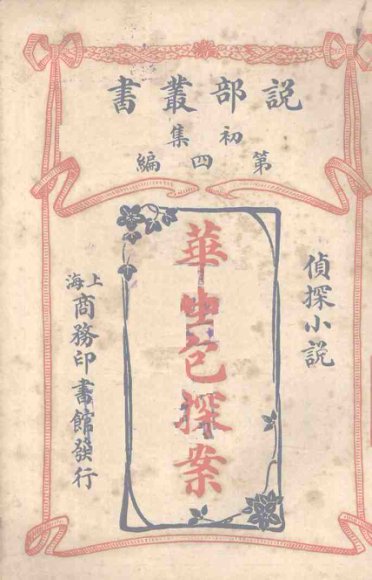 說部叢書
初集
第四編
偵探小說
華生包探案
上海
商務印書館發行